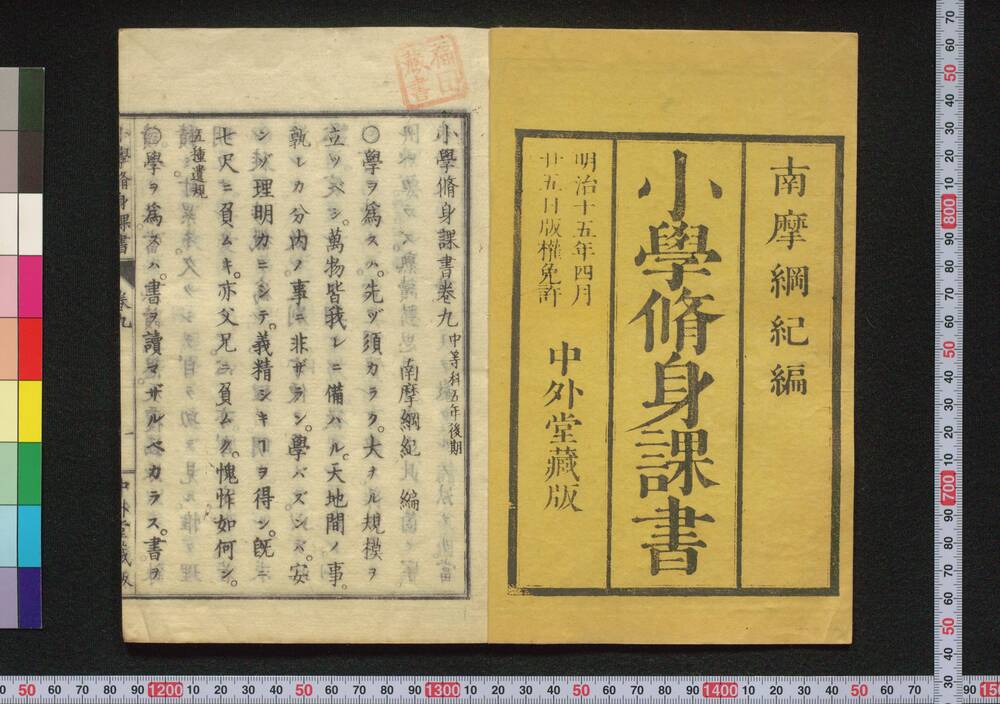 南摩綱紀編
小學脩身課書
明治十五年四月
廿五日版權免許
中外堂藏版
小學脩身課書卷九
中等科五年後期
南摩綱紀 編
〇學ヲ爲スハ。先ヅ須カラク。大ナル規模ヲ
立ツベシ。萬物皆我レニ備ハル。天地間ノ事。
孰レカ分内ノ事ニ非ザラン。學バズンバ。安
ンゾ理明カニシテ。義精シキヿヲ得ン。既ニ
七尺ニ負ムキ。亦父兄ニ負ムク。愧怍如何ン。
五種遺規
〇學ヲ爲スハ。書ヲ讀マザルベカラス。書ヲ
小學脩身課書
卷九
一
中外堂藏版
藏書